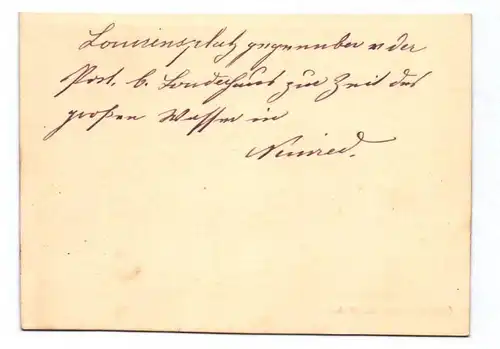 Louisenplatz gegenüber der
Post. b. Landeshaus zur Zeit des
großen Wasser in
Neuwied.